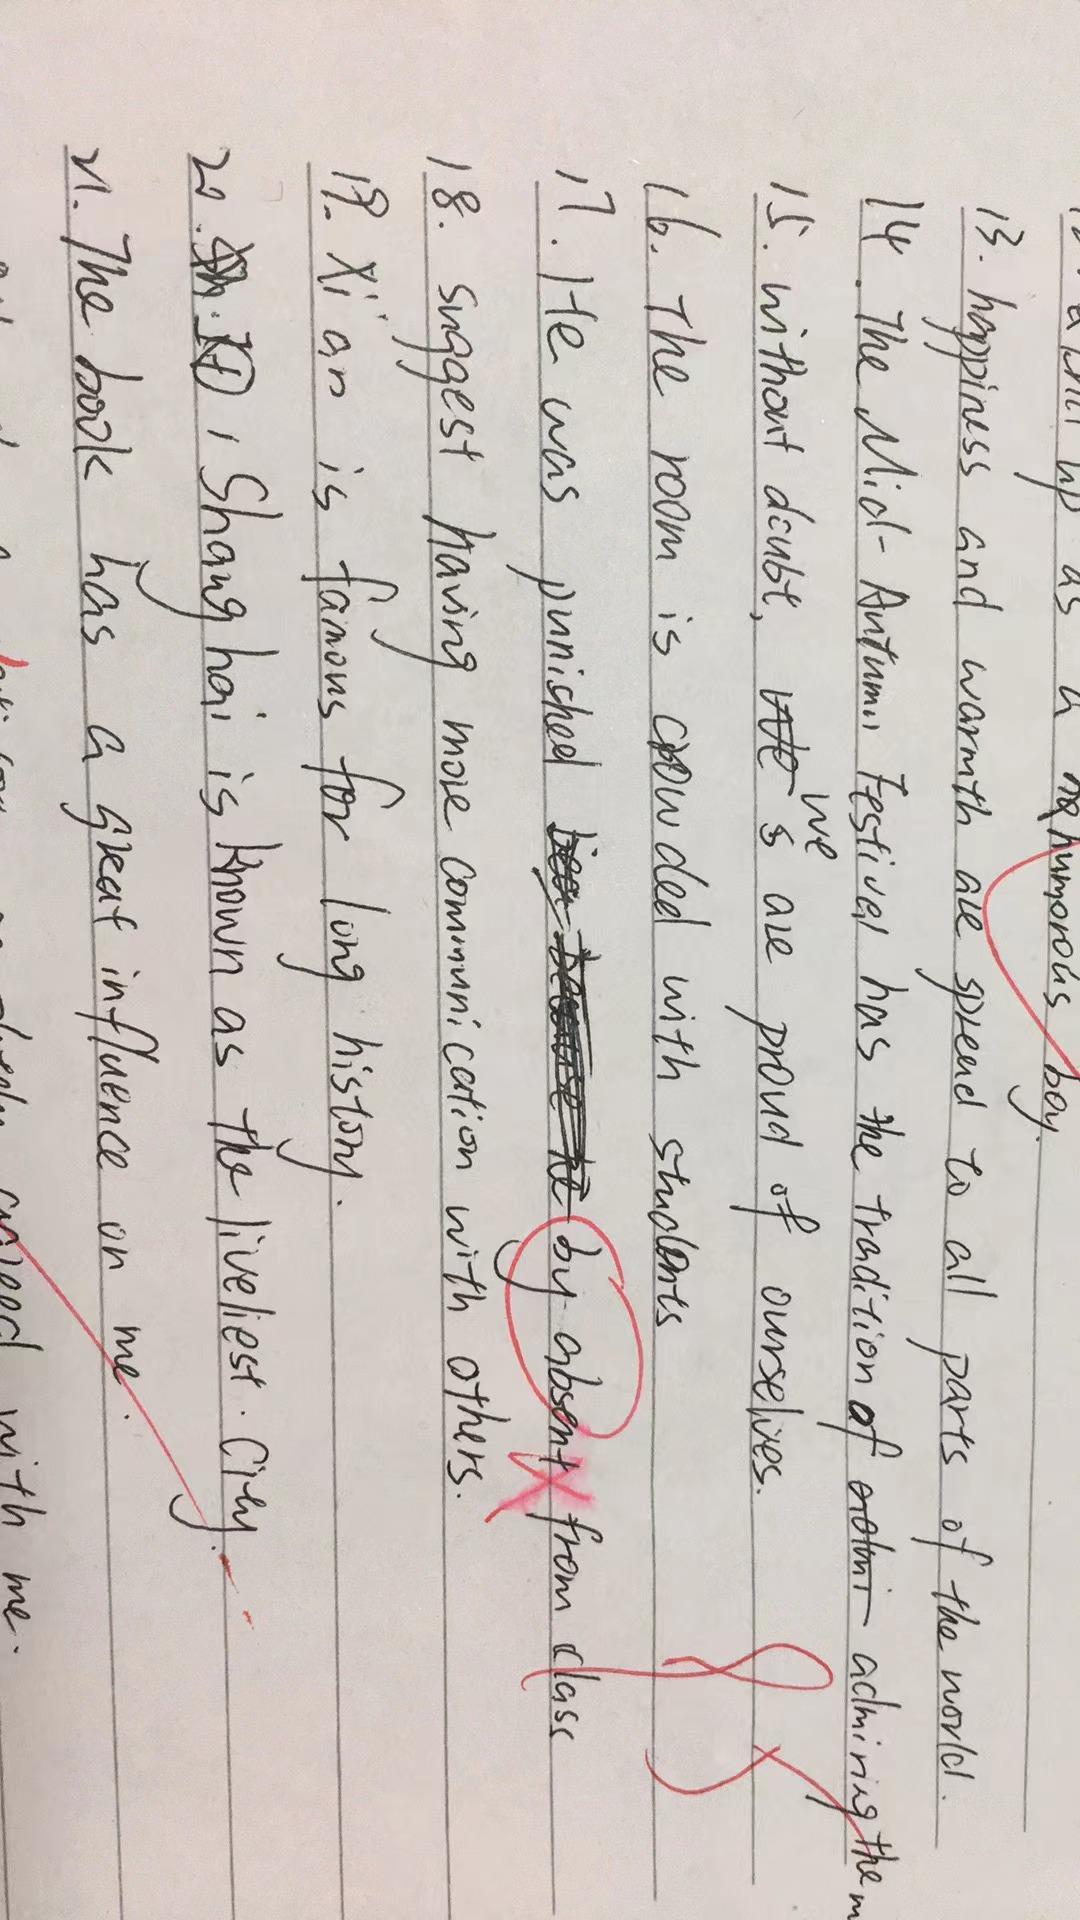 up as a humorous boy.
13. happiness and warmth are spread to all parts of the world.
14. The Mid-Autumn Festival has the tradition of admiring the m
15. without doubt, we are proud of ourselves.
16. The room is crowded with students
17. He was punished by absent from class
18. suggest having more communication with others.
19. Xi'an is famous for long history.
20. Shanghai is known as the liveliest. City.
21. The book has a great influence on me.
with me.